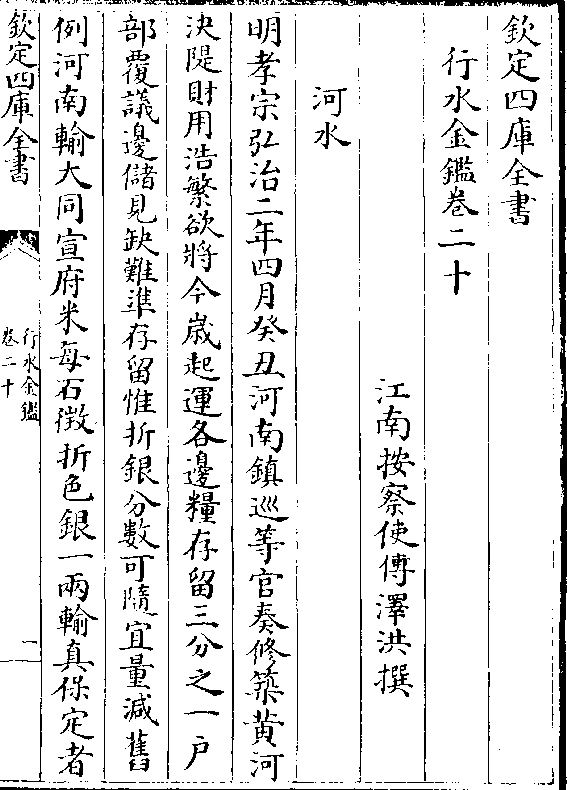 欽定四庫全書
行水金鑑卷二十
江南按察使傅澤洪撰
河水
明孝宗弘治二年四月癸丑河南鎮巡等官奏修築黄河
決隄財用浩繁欲將今嵗起運各邊糧存留三分之一户
部覆議邊儲見缺難準存留惟折銀分數可隨宜量減舊
例河南輸大同宣府米每石徴折色銀一兩輸真保定者
欽定四庫全書
行水金鑑
卷二十
一